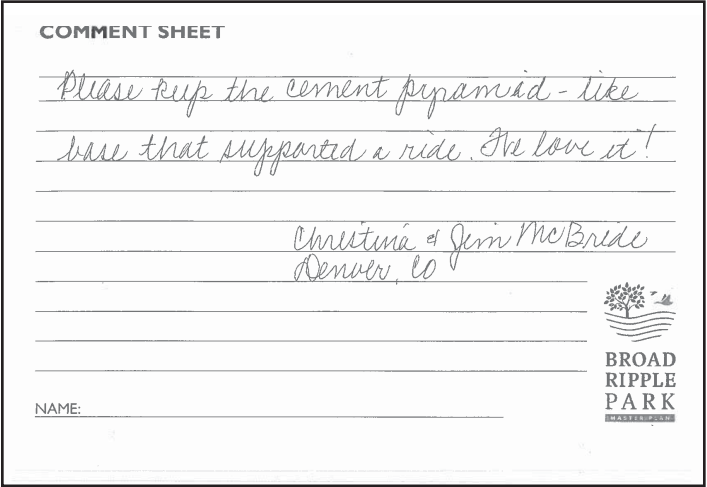 COMMENT SHEET
Please keep the cement pyramid - like
base that supported a ride. I've love it!
Christina & Jim McBride
Denver, CO
BROAD
RIPPLE
PARK
MASTER PLAN
NAME: